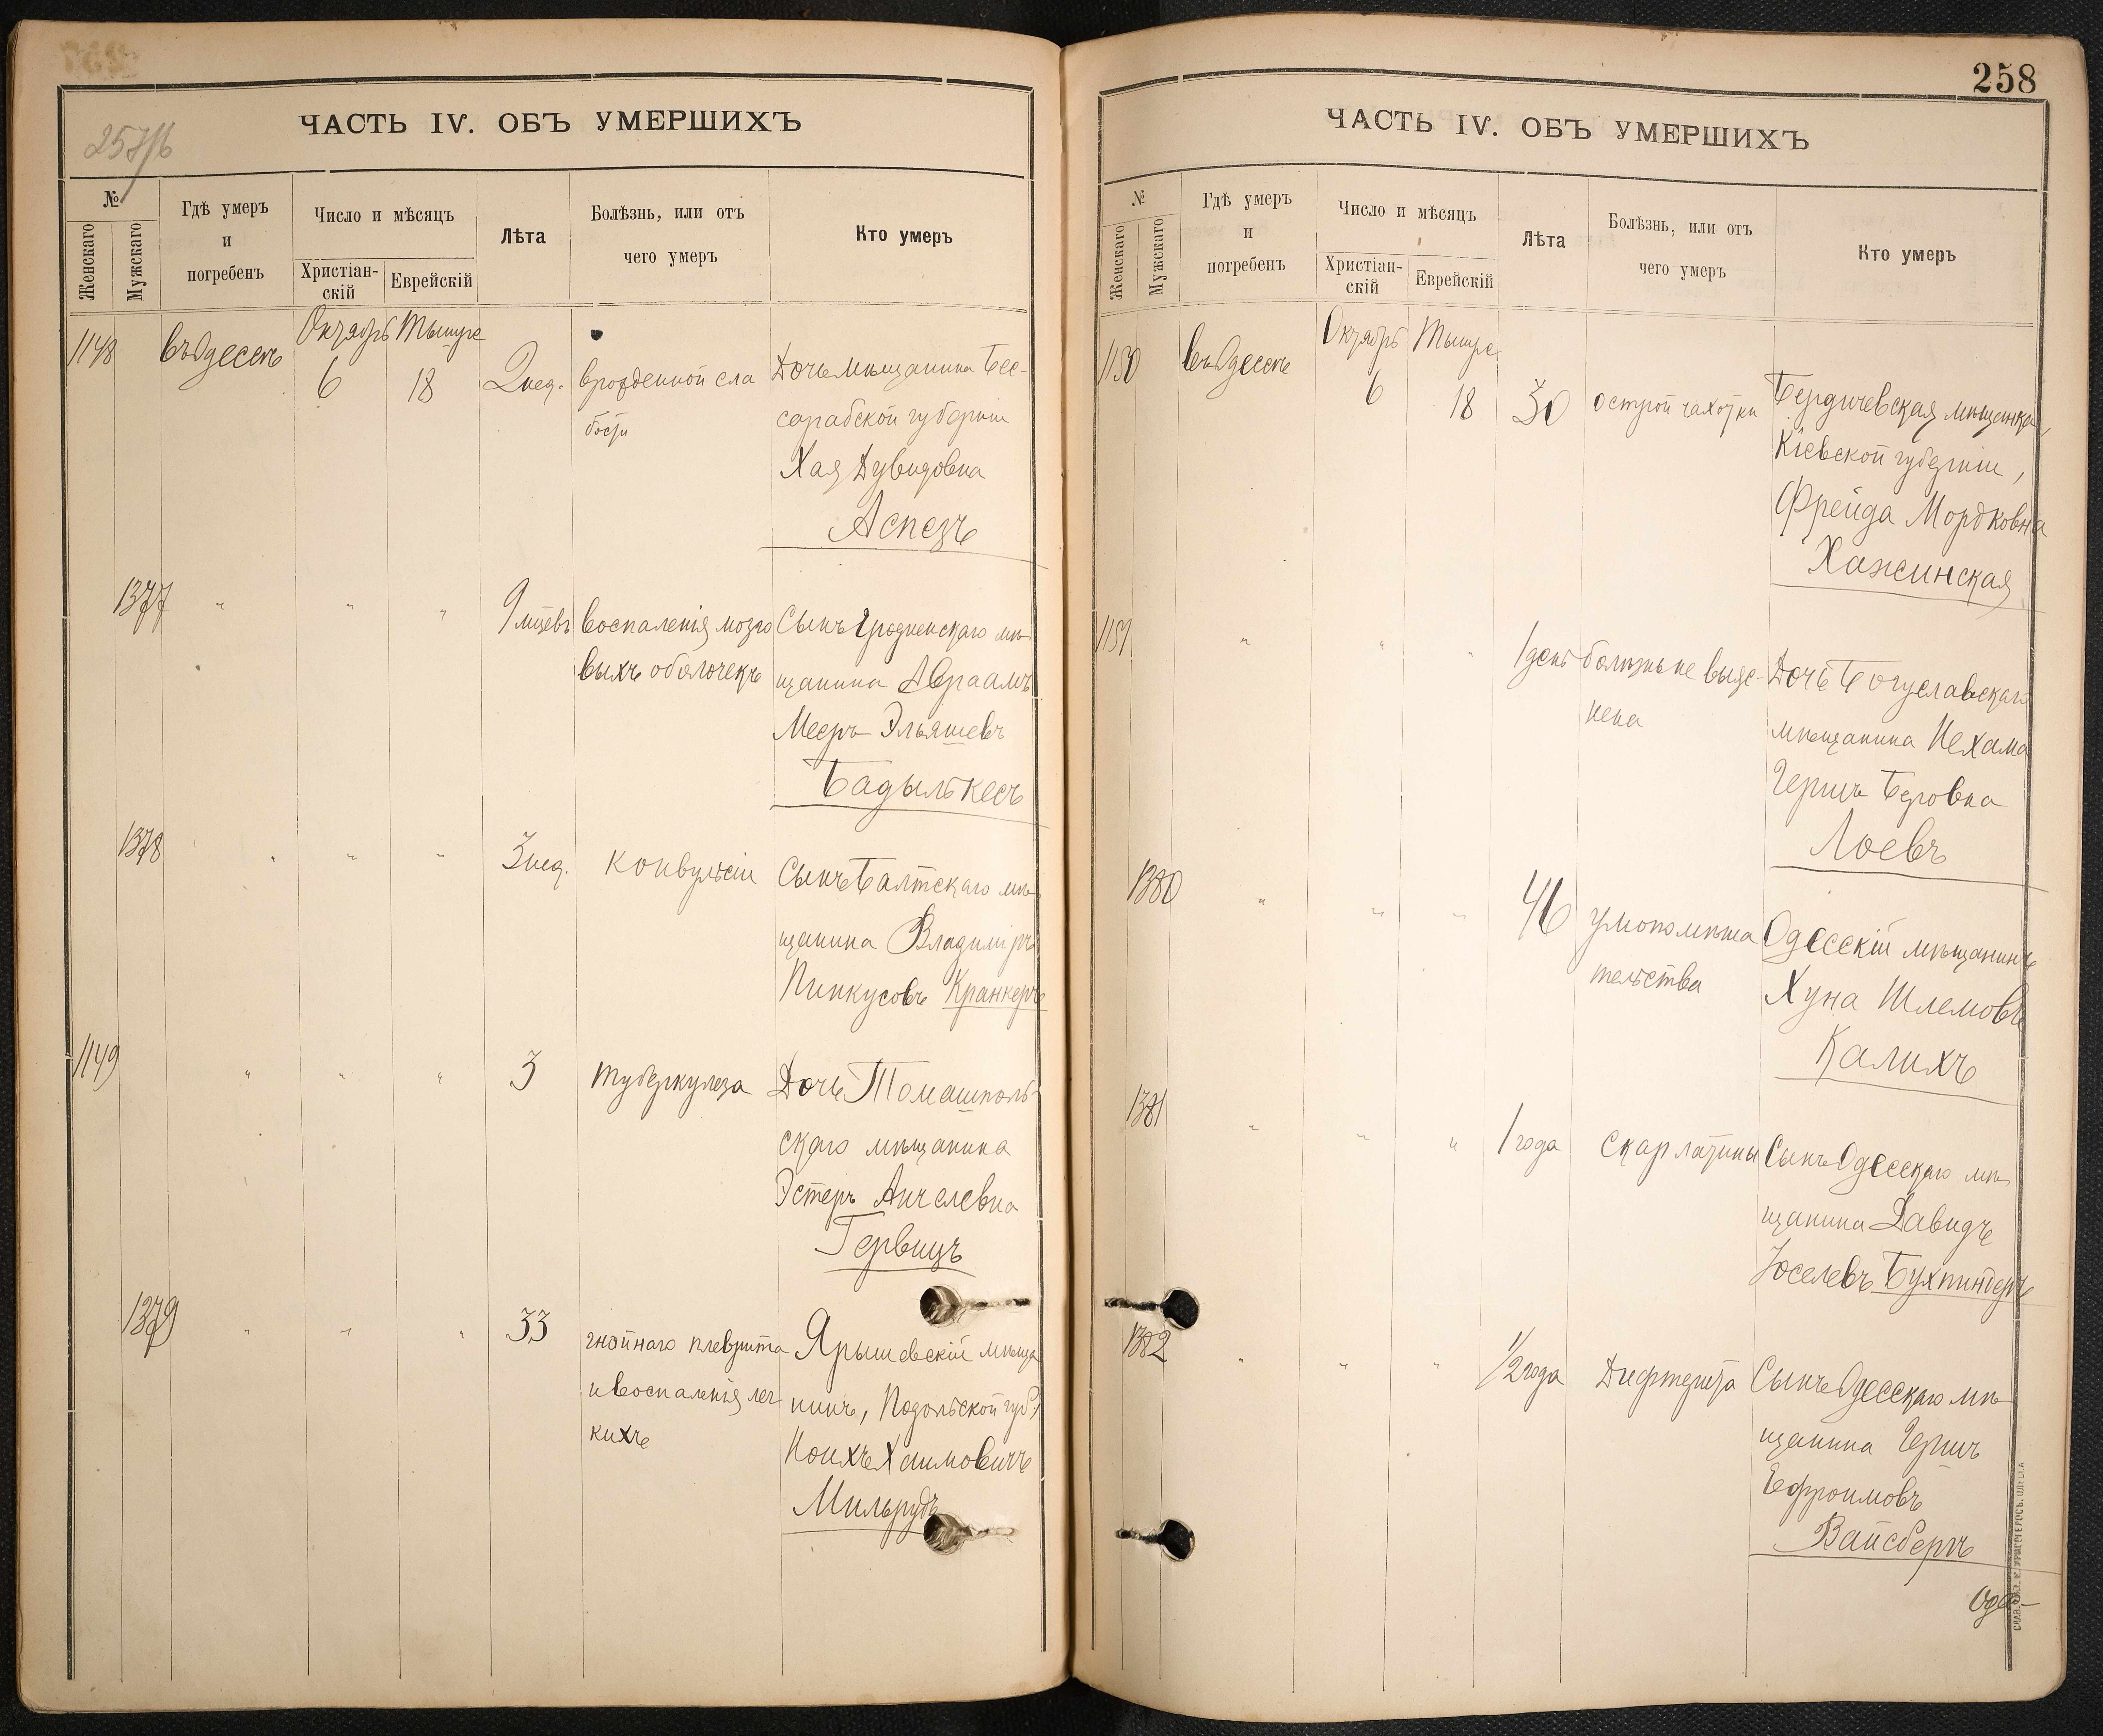 257/б
ЧАСТЬ IV. ОБЪ УМЕРШИХЪ
№
Женскаго
Мужскаго
Гдѣ умеръ
и
погребенъ
Число и мѣсяцъ
Христіан-
скій
Еврейскій
Лѣта
Болѣзнь, или отъ
чего умеръ
Кто умеръ
Октябрь Тышре
1148 въ Одессѣ 6 18 2 нед. врожденной сла
бости
Дочь мѣщанина Бес-
сарабской губерніи
Хая Дувидовна
Аспезъ
1377 " " " 9 мцевъ воспаленія мозго
выхъ оболочекъ
Сынъ Гродненскаго мѣ
щанина Авраамъ
Мееръ Эльяшевъ
Бадылькесъ
1378 " " " 3 нед. конвульсіи
Сынъ Балтскаго мѣ
щанина Владиміръ
Пинкусовъ Кранкеръ
1149 " " " 3 туберкулеза
Дочь Томашполь-
скаго мѣщанина
Эстеръ Анчелевна
Гервицъ
1379 " " " 33 гнойнаго плеврита
и воспаленія лег
кихъ
Ярышевскій мѣща
нинъ, Подольской губ,
Ноихъ Хаимовичъ
Мильрудъ
258
ЧАСТЬ IV. ОБЪ УМЕРШИХЪ
№
Женскаго
Мужскаго
Гдѣ умеръ
и
погребенъ
Число и мѣсяцъ
Христіан-
скій
Еврейскій
Лѣта
Болѣзнь, или отъ
чего умеръ
Кто умеръ
Октябрь Тышре
1150 въ Одессѣ 6 18 30 острой чахотки
Бердичевская мѣщанка,
Кіевской губерніи,
Фрейда Мордковна
Хажинская
1151 " " " 1 день болѣзнь не выяс-
нена
Дочь Богуславскаго
мѣщанина Нехама
Гершъ Беровна
Лоевъ
1380 " " " 46 умопомѣша
тельства
Одесскій мѣщанинъ
Хуна Шлемовъ
Калихъ
1381 " " " 1 года скарлатины
Сынъ Одесскаго мѣ
щанина Давидъ
Іоселевъ Бухпиндеръ
1382 " " " 1/2 года Дифтерита
Сынъ Одесскаго мѣ
щанина Гершъ
Ефроимовъ
Вайсберъ
Оде-